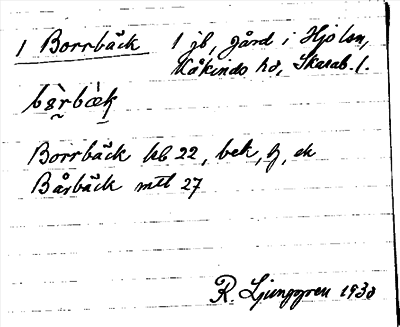 1 Borrbäck 1 jb, gård i Hjo lsn,
Kåkinds hd, Skarab. l.
bèrbæ̀k
Borrbäck hb 22, bek, g, ek
Bårbäck mtl 27
R. Ljunggren 1930